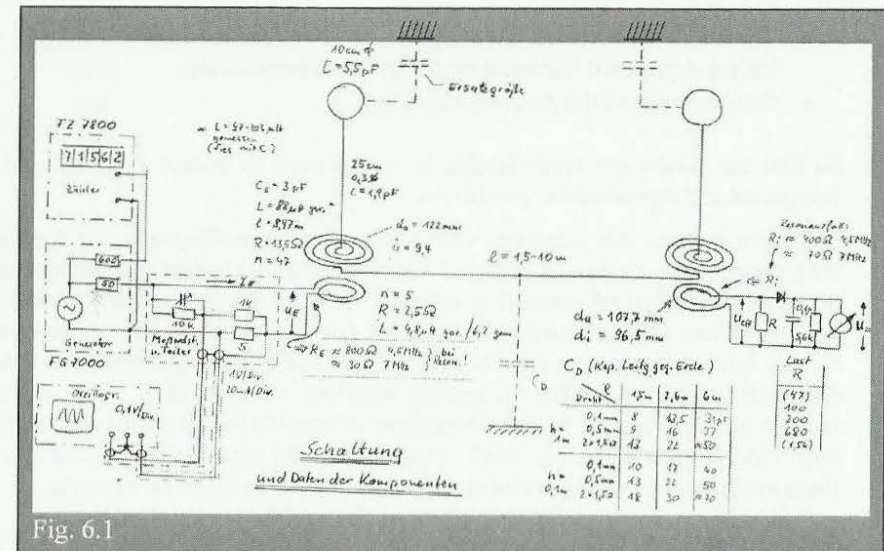 10cm ϕ
C = 5,5 pF
Ersatzgröße
FZ 7800
7 1 5 6 2
Zähler
gemessen
25cm
0,3Ω
C = 1,9 pF
L = 86µH ger.*
l = 8,97m
R = 13,5Ω
n = 47
da = 122mm
ü = 9,4
l = 1,5-10m
Resonanzfall:
Ri ≈ 400Ω 4,5MHz
≈ 70Ω 7MHz
60Ω
Generator
FG 7000
10k
1k
5
Meßwidst.
u. Teiler
UE
n = 5
R = 2,5Ω
L = 4,8µH ger./6,2 gem.
⇒ RE ≈ 800Ω 4,5MHz } bei
≈ 30Ω 7MHz } Reson.!
1V/Div.
20mA/Div.
Oszillogr.
0,1V/Div.
CD
da = 107,7 mm
di = 96,5 mm
Ueff
R
5,6k
CD (Kap. Leitg geg. Erde)
Draht
1,5m 2,6m 6m
h = 1m
0,1mm 8 13,5 31pF
0,5mm 9 16 37
2×1,5² 13 22 ≈50
h = 0,1m
0,1mm 10 17 40
0,5mm 13 22 50
2×1,5² 18 30 ≈70
Last
R
(47)
100
200
680
Schaltung
und Daten der Komponenten
Fig. 6.1